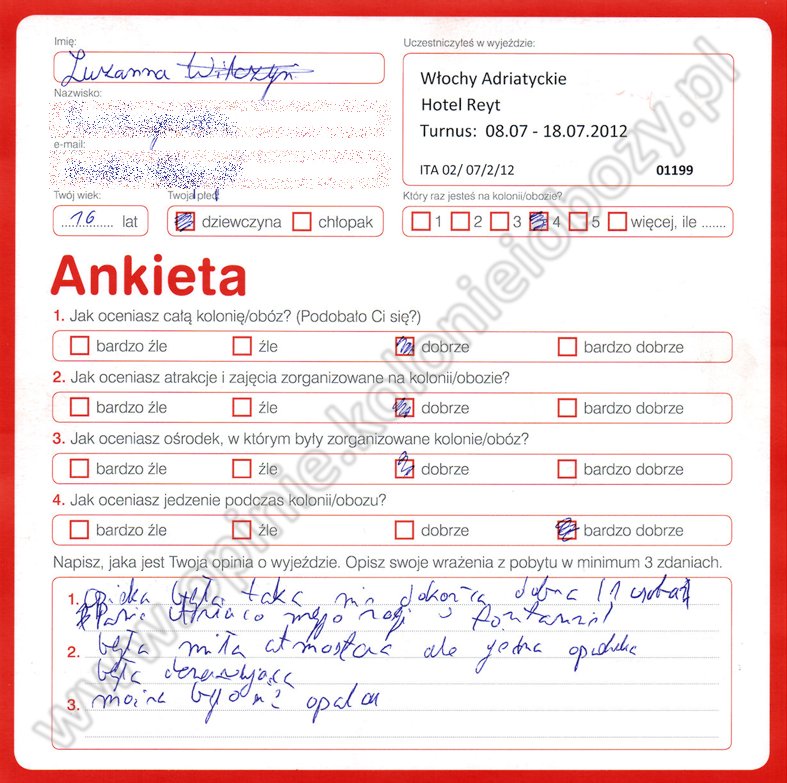 Imię:
Zuzanna
Nazwisko:
e-mail:
Twój wiek:
16 lat
Twoja płeć
dziewczyna chłopak
Uczestniczyłeś w wyjeździe:
Włochy Adriatyckie
Hotel Reyt
Turnus: 08.07 - 18.07.2012
ITA 02/ 07/2/12 01199
Który raz jesteś na kolonii/obozie?
1 2 3 4 5 więcej, ile .......
Ankieta
1. Jak oceniasz całą kolonię/obóz? (Podobało Ci się?)
bardzo źle źle dobrze bardzo dobrze
2. Jak oceniasz atrakcje i zajęcia zorganizowane na kolonii/obozie?
bardzo źle źle dobrze bardzo dobrze
3. Jak oceniasz ośrodek, w którym były zorganizowane kolonie/obóz?
bardzo źle źle dobrze bardzo dobrze
4. Jak oceniasz jedzenie podczas kolonii/obozu?
bardzo źle źle dobrze bardzo dobrze
Napisz, jaka jest Twoja opinia o wyjeździe. Opisz swoje wrażenia z pobytu w minimum 3 zdaniach.
1. opieka była taka nie dokońca dobra (1 osoba)
2. była miła atmosfera ale jedna
była
3. można było opalać
www.opinie.kolonieiobozy.pl